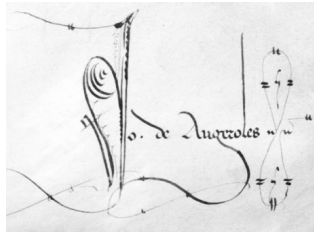 Jo. de Augeroles